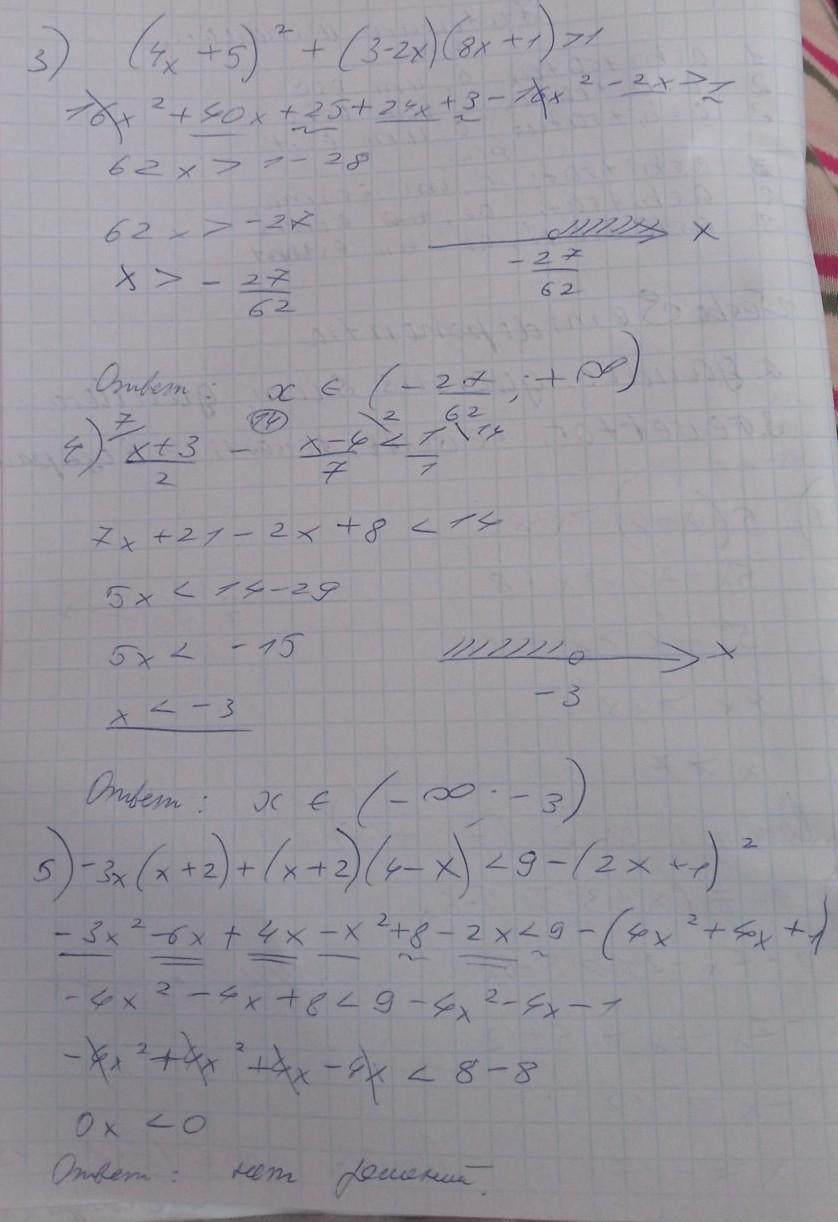 3) (4x + 5)² + (3-2x)(8x+1) > 1
16x² + 40x + 25 + 24x + 3 - 16x² - 2x > 1
62x > 1 - 28
62x > -27
x > - 27/62
x
- 27/62
Ответ: x ∈ (- 27/62 ; + ∞)
4) x+3/2 \7 - x-4/7 \2 < 1/1 \14
14
7x + 21 - 2x + 8 < 14
5x < 14-29
5x < -15
x < -3
x
-3
Ответ: x ∈ (-∞; -3)
5) -3x(x+2)+(x+2)(4-x) < 9-(2x+1)²
-3x² -6x + 4x -x² +8 - 2x < 9 -(4x² + 4x + 1)
-4x² - 4x + 8 < 9 - 4x² - 4x - 1
-4x² + 4x² + 4x - 4x < 8 - 8
0x < 0
Ответ: нет решений.